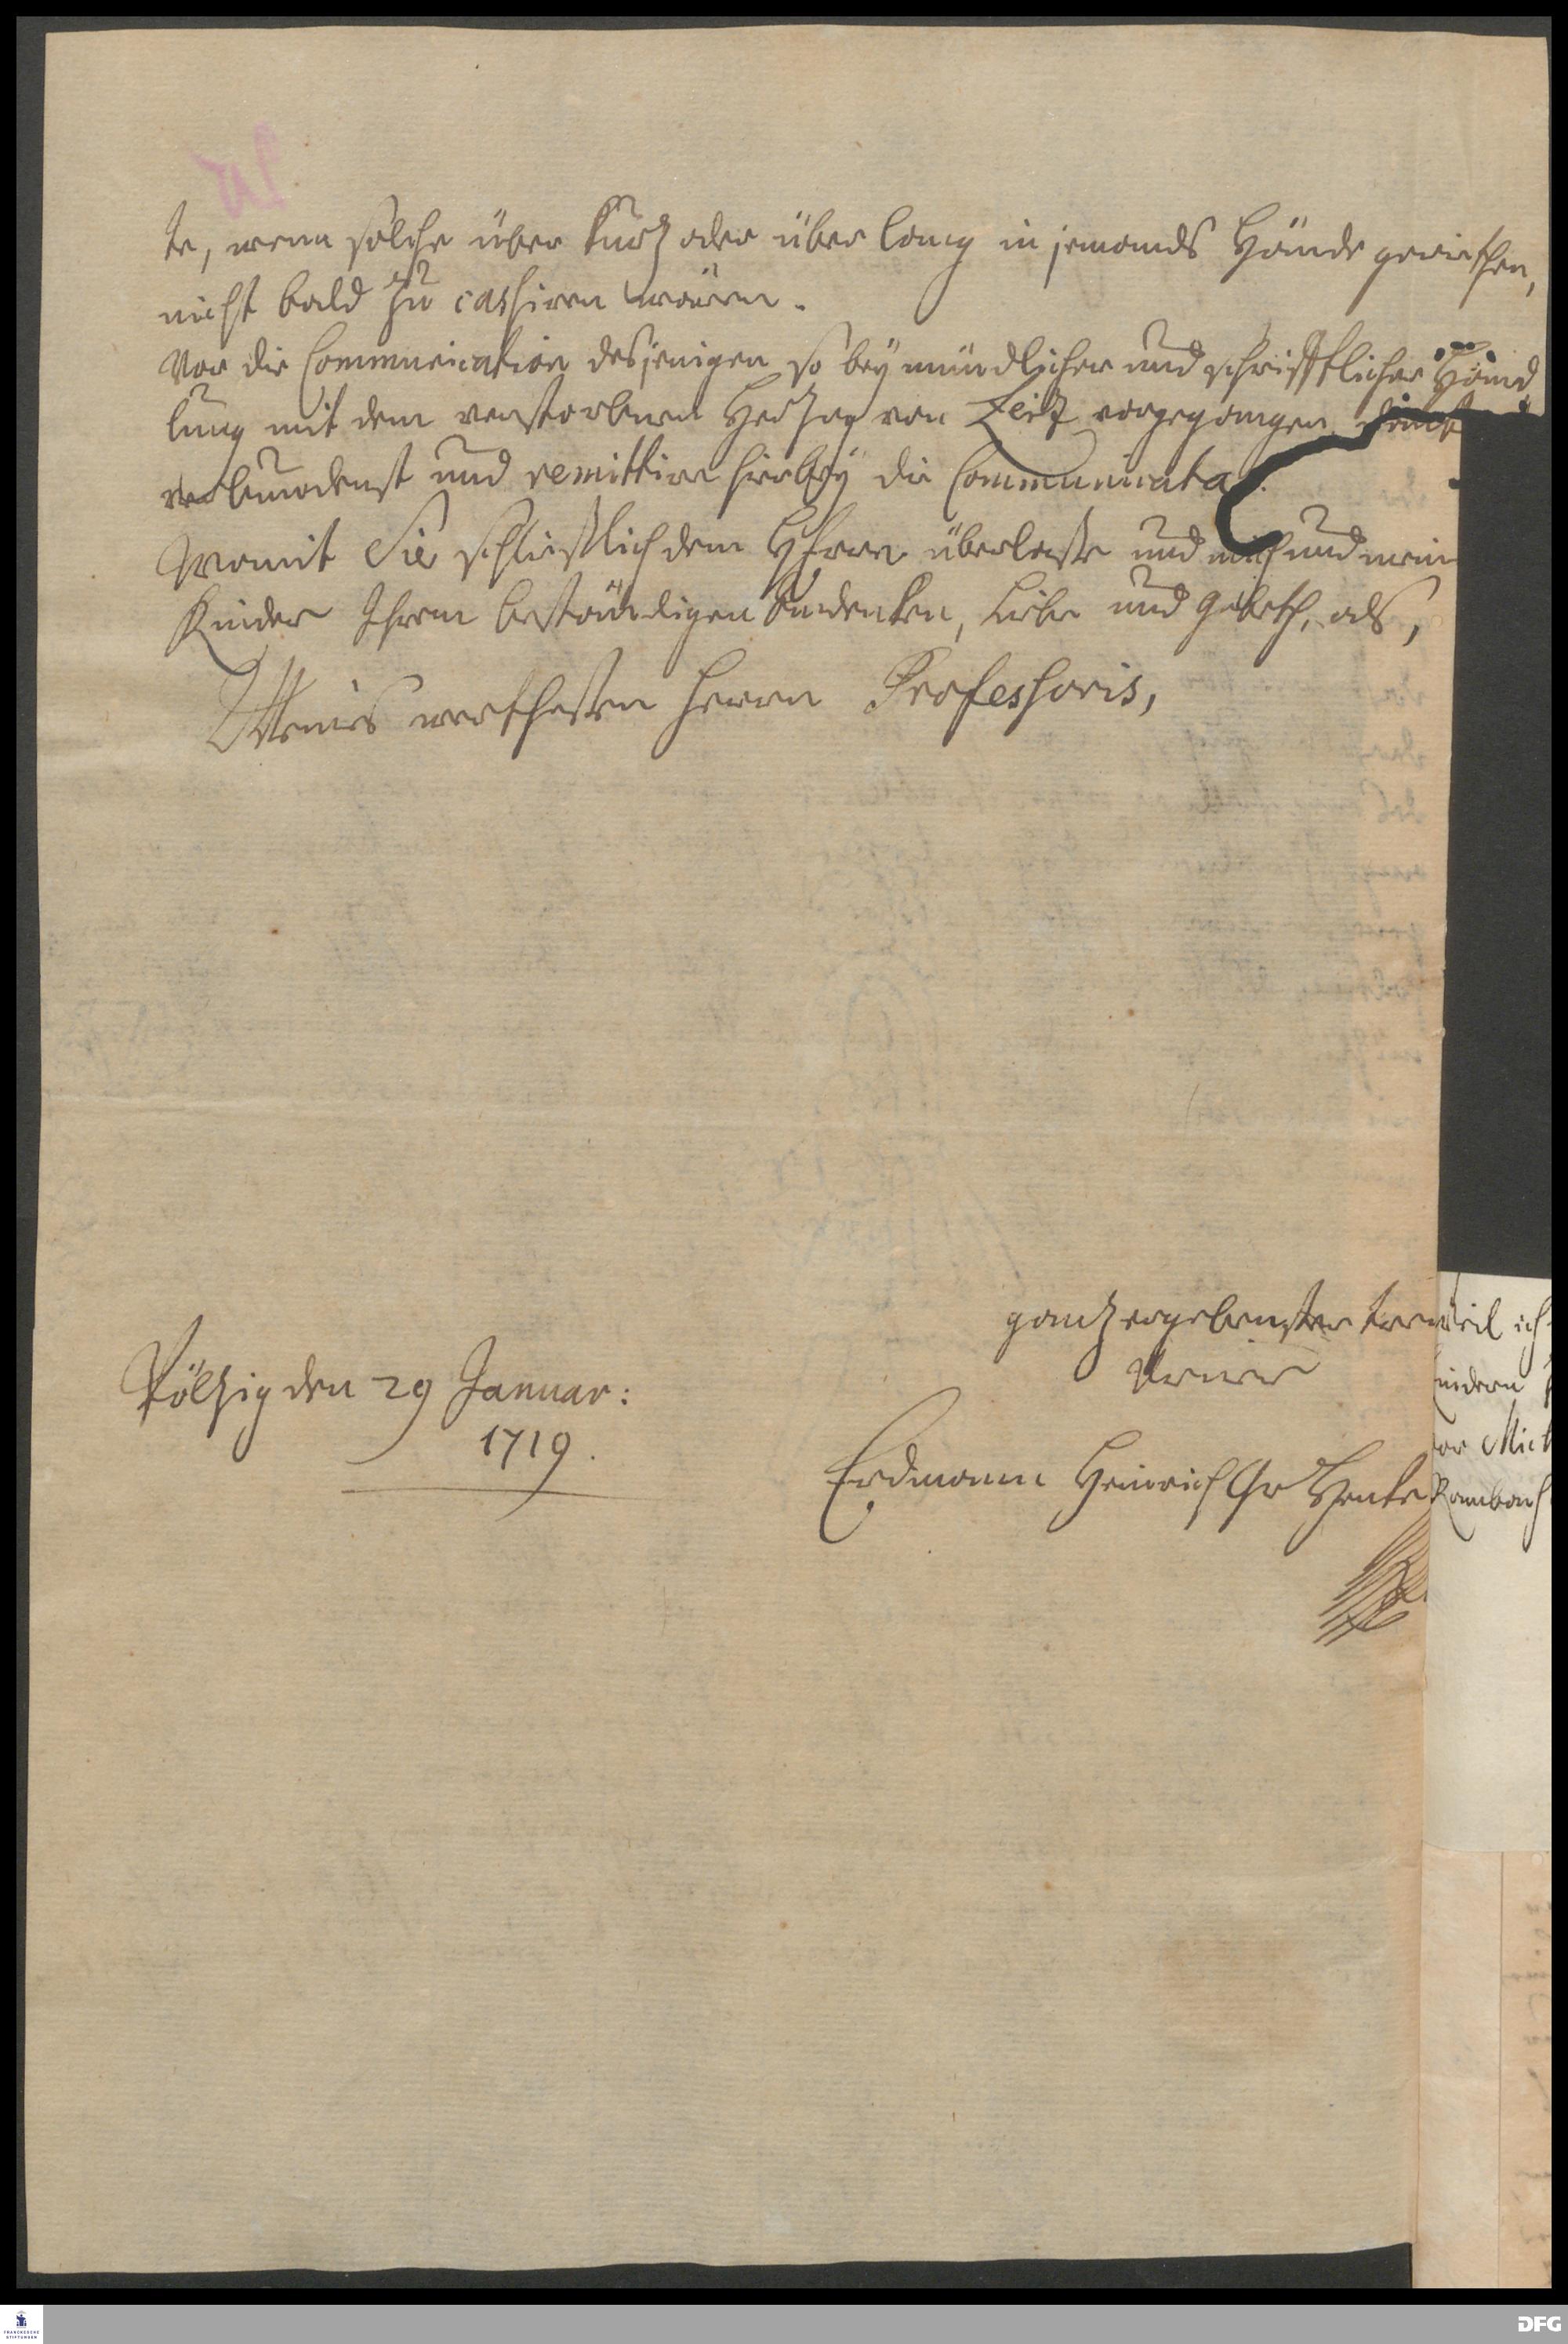 te, wenn solche über kurtz oder über lang in jemands Hände geriethen,
nicht bald zu cassiren wären.
Vor die Communication desjenigen so bey mündlicher und schrifftlicher Hand
lung mit dem verstorbenen Hertzog von Zeitz vorgegangen, dancke
verbundenst und remittire hierbey die Communicata.
Womit Sie schließlich dem HErrn überlaße und mich und meine
Kinder Ihrem beständigen Andencken, Liebe und Gebeth, als,
Meines werthesten Herrn Professoris,
gantz ergebenster treu
Pöltzig den 29 Januar:
1719.
Erdmann Heinrich Gr Henkel
weil ich
Kindern
Rambach
FRANCKESCHE STIFTUNGEN
DFG